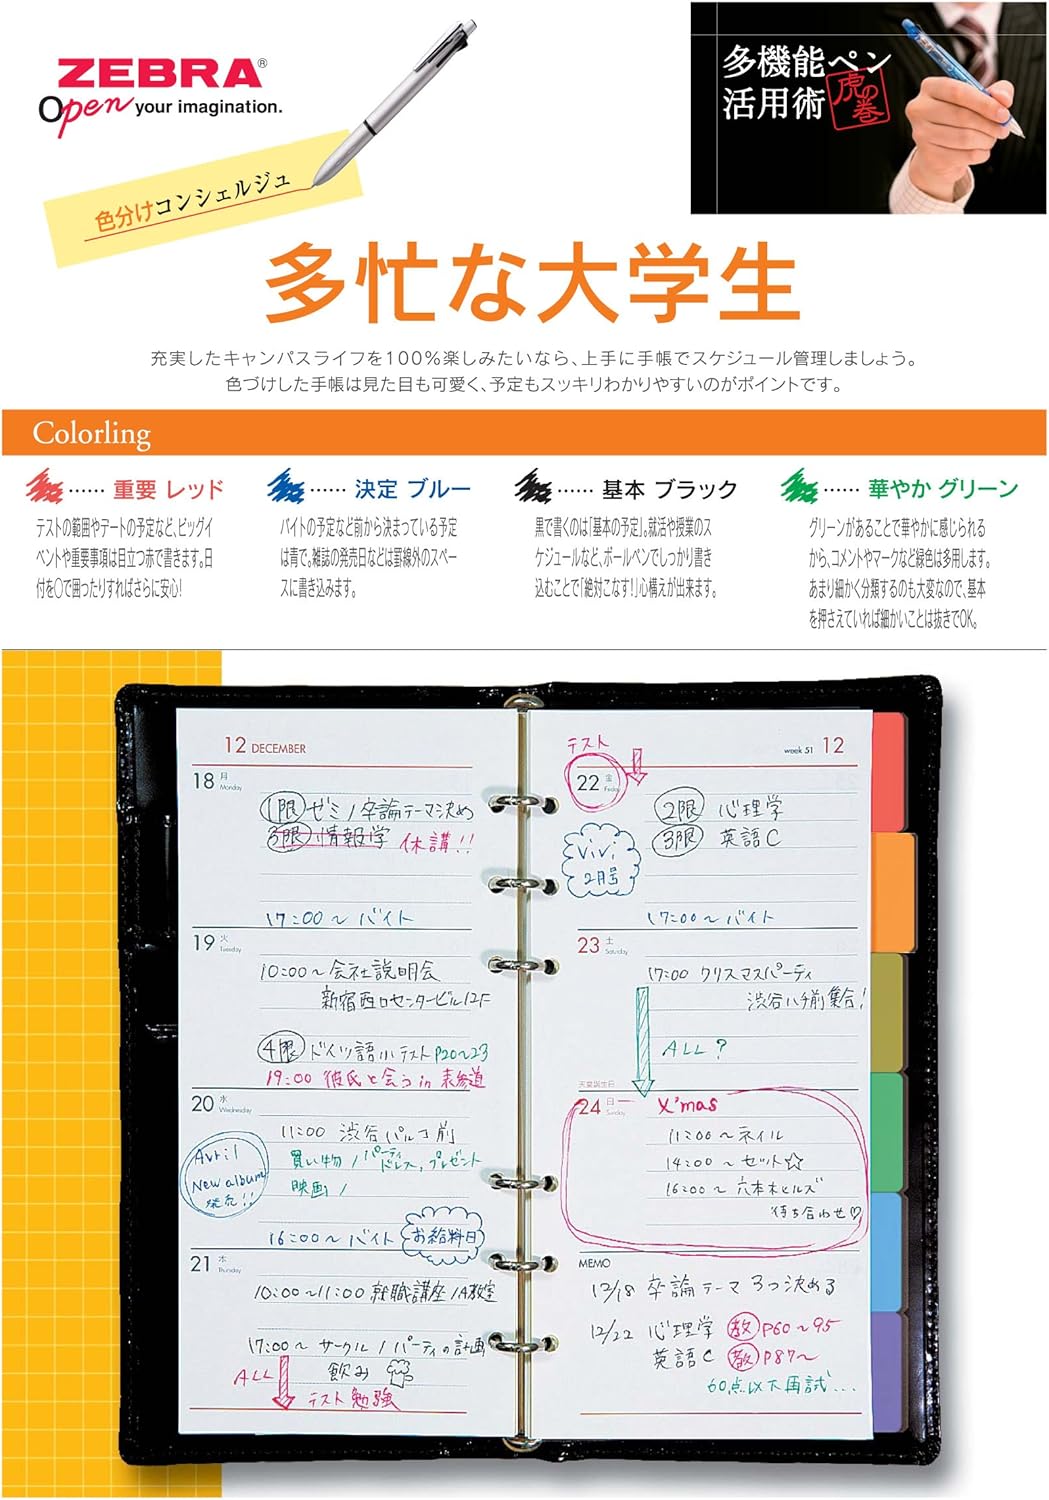 ZEBRA®
Open your imagination.
色分けコンシェルジュ
多機能ペン
活用術
虎の巻
多忙な大学生
充実したキャンパスライフを100%楽しみたいなら、上手に手帳でスケジュール管理しましょう。
色づけした手帳は見た目も可愛く、予定もスッキリわかりやすいのがポイントです。
Colorling
…… 重要 レッド
テストの範囲やデートの予定など、ビッグイ
ベントや重要事項は目立つ赤で書きます。日
付を○で囲ったりすればさらに安心!
…… 決定 ブルー
バイトの予定など前から決まっている予定
は青で。雑誌の発売日などは罫線外のスペー
スに書き込みます。
…… 基本 ブラック
黒で書くのは「基本の予定」。就活や授業のス
ケジュールなど、ボールペンでしっかり書き
込むことで「絶対こなす!」心構えが出来ます。
…… 華やか グリーン
グリーンがあることで華やかに感じられる
から、コメントやマークなど緑色は多用します。
あまり細かく分類するのも大変なので、基本
を押さえていれば細かいことは抜きでOK。
12 DECEMBER
18 月 Monday
1限 ゼミ / 卒論テーマ決め
3限 情報学 休講!!
17:00〜 バイト
19 火 Tuesday
10:00〜会社説明会
新宿西口センタービル12F
4限 ドイツ語小テスト P20〜23
19:00 彼氏と会う in 表参道
20 水 Wednesday
11:00 渋谷パルコ前
買い物 / パーティドレス、プレゼント
映画 /
Avril
New album
発売!!
16:00〜 バイト
お給料日
21 木 Thursday
10:00〜11:00 就職講座 / A教室
17:00〜 サークル / パーティの計画
飲み
ALL
テスト勉強
week 51 12
テスト
22 金 Friday
2限 心理学
3限 英語C
ViVi
2月号
17:00〜バイト
23 土 Saturday
17:00 クリスマスパーティ
渋谷ハチ前集合!
ALL?
天皇誕生日
24 日 Sunday
X'mas
11:00〜ネイル
14:00〜セット☆
16:00〜 六本木ヒルズ
待ち合わせ♡
MEMO
12/18 卒論テーマ 3つ決める
12/22 心理学 教 P60〜95
英語C 教 P87〜
60点以下再試...